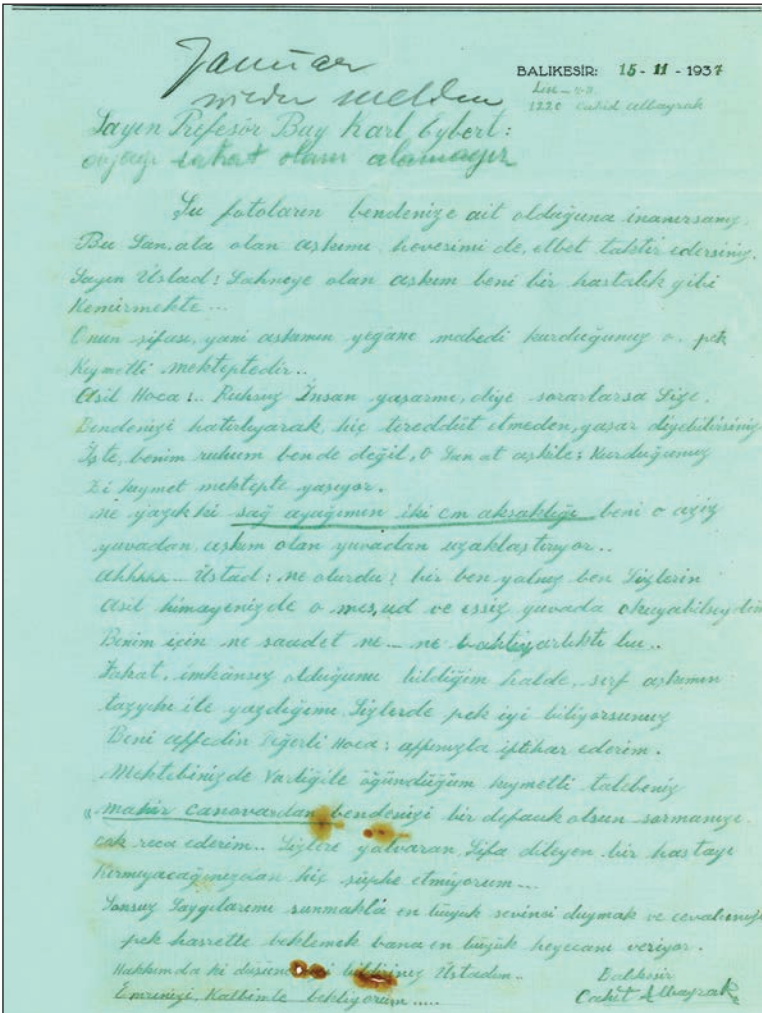 Januar
wieder melden
BALIKESİR: 15 - 11 - 1937
Lise
1220 Cahid Albayrak
Sayın Prefesör Bay Karl Eybert:
ayağı sakat olanı alamayız
Şu fotoların bendenize ait olduğuna inanırsanız,
Bu San,ata olan aşkımı hevesimi de, elbet taktir edersiniz.
Sayın Üstad: Sahneye olan aşkım beni bir hastalık gibi
Kemirmekte ...
Onun şifası, yani aşkımın yegâne mabedi kurduğunuz o, pek
Kıymetli mekteptedir..
Asil Hoca:.. Ruhsuz İnsan yaşarmı, diye sorarlarsa Size,
Bendenizi hatırlayarak, hiç tereddüt etmeden, yaşar diyebilirsiniz
İşte, benim ruhum bende değil, O San at aşkile; Kurduğunuz
Zi kıymet mektepte yaşıyor.
ne yazık ki sağ ayağımın iki cm aksaklığı beni o aziz
yuvadan, aşkım olan yuvadan uzaklaştırıyor..
Ahhhh... Üstad: ne olurdu? bir ben yalnız ben Sizlerin
Asil himayenizde o mes,ud ve eşsiz yuvada okuyabilseydim
Benim için ne saadet ne... ne bahtiyarlıktı bu..
Fakat, imkânsız olduğunu bildiğim halde, sırf aşkımın
tazyıkı ile yazdığımı Sizlerde pek iyi biliyorsunuz
Beni affedin Değerli Hoca: affınızla iftihar ederim.
Mektebinizde Varlığile öğündüğüm kıymetli talebeniz
"mahir canovardan bendenizi bir defacık olsun sormanızı
çok reca ederim.. Sizlere yalvaran, Şifa dileyen bir hastayı
Kırmıyacağınızdan hiç şüphe etmiyorum...
Sonsuz Saygılarımı sunmakla en büyük sevinci duymak ve cevabınızı
pek hasretle beklemek bana en büyük heyecanı veriyor.
Hakkımda ki bildiriniz Üstadım..
Emrinizi, Kalbimle bekliyorum.....
Balıkesir
Cahit Albayrak